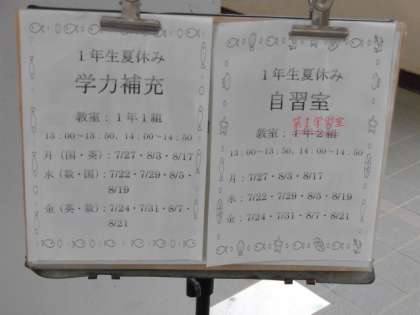 1年生夏休み
学力補充
教室：1年1組
13：00～13：50，14：00～14：50
月（国・英）：7/27・8/3・8/17
水（数・国）：7/22・7/29・8/5・
8/19
金（英・数）：7/24・7/31・8/7・
8/21
1年生夏休み
自習室
第1学習室
教室：1年2組
13：00～13：50，14：00～14：50
月：7/27・8/3・8/17
水：7/22・7/29・8/5・8/19
金：7/24・7/31・8/7・8/21